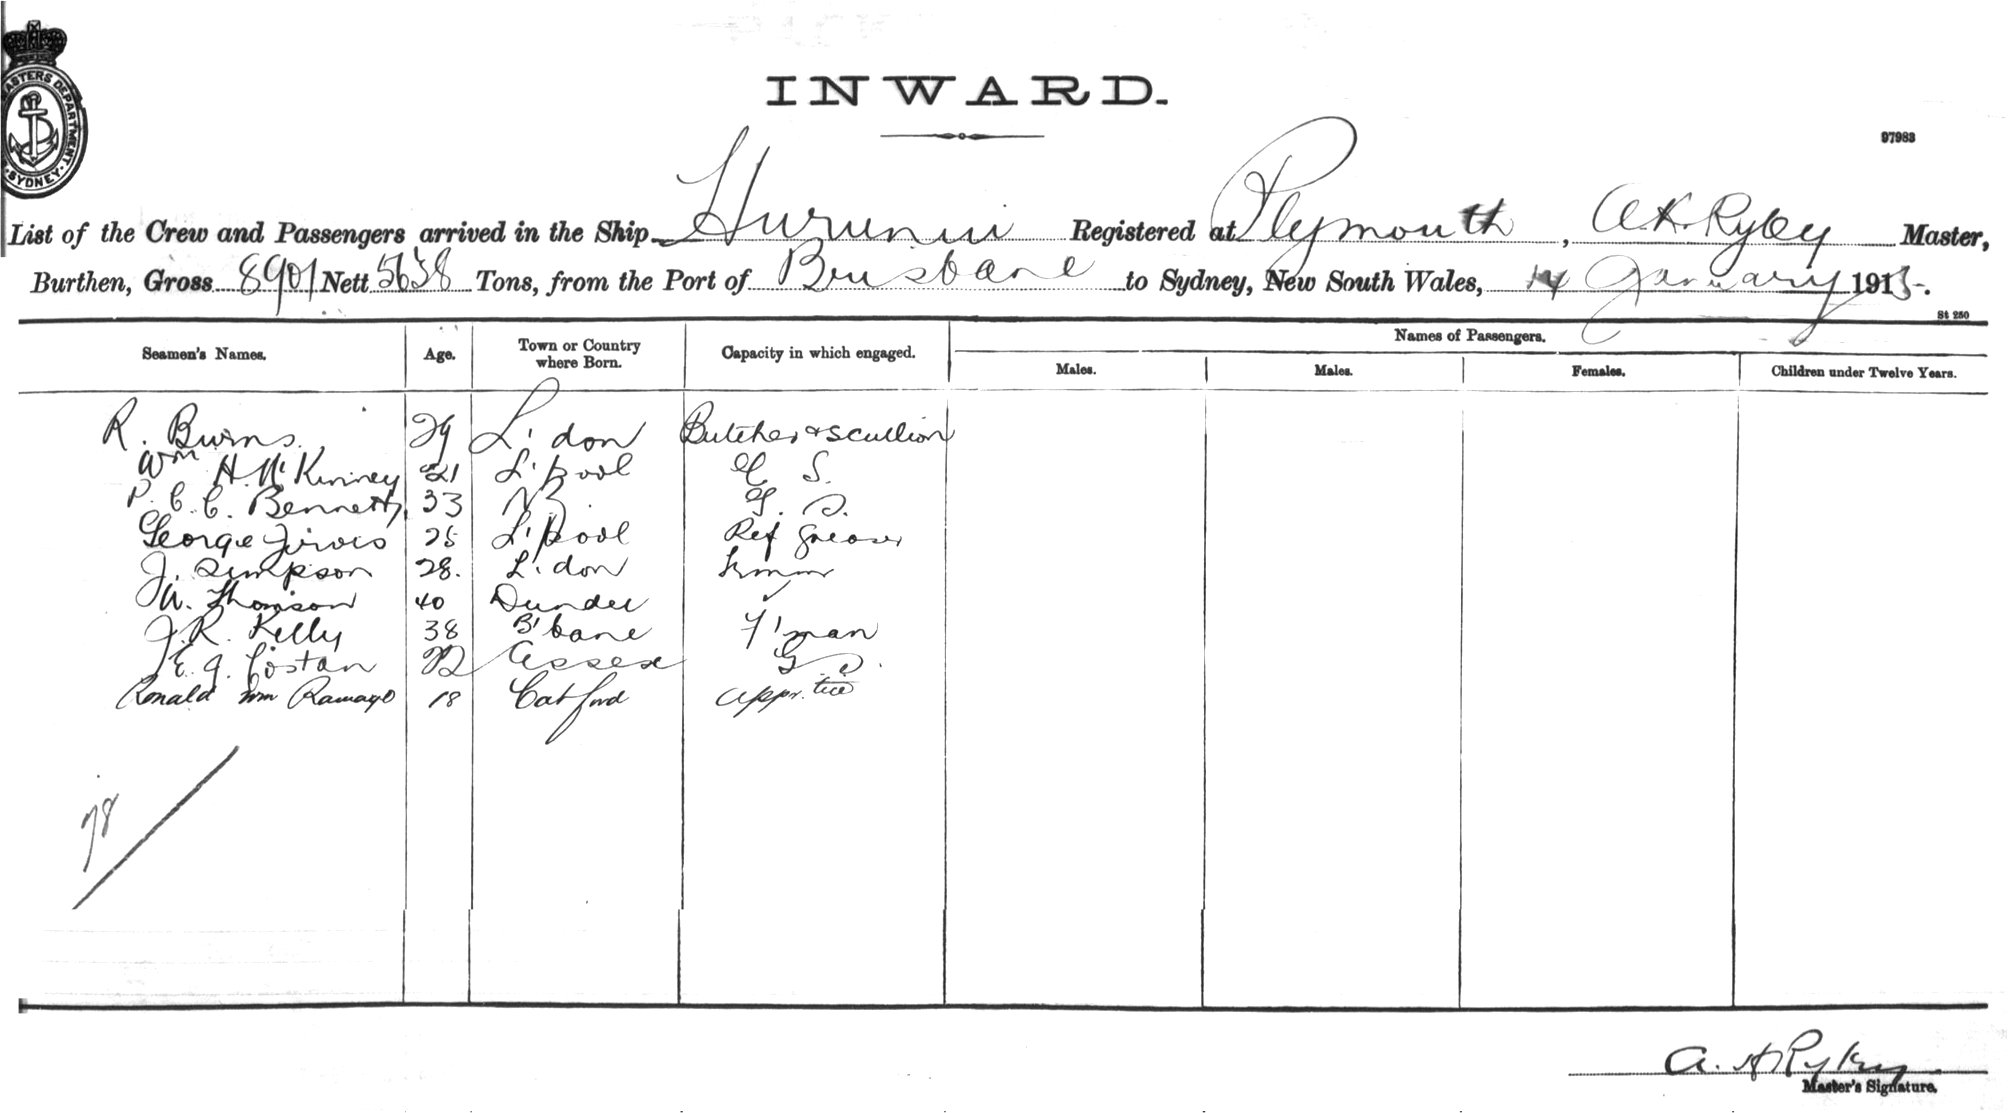 MASTERS DEPARTMENT
SYDNEY.
INWARD.
97983
List of the Crew and Passengers arrived in the Ship Hurunui Registered at Plymouth, A.H. Ryley Master,
Burthen, Gross 8901 Nett 5638 Tons, from the Port of Brisbane to Sydney, New South Wales, 14 January 1915.
St 250
Seamen's Names. Age. Town or Country where Born. Capacity in which engaged. Names of Passengers.
Males. Males. Females. Children under Twelve Years.
R. Burns 29 L'don Butcher & Scullion
Wm H. McKinney 21 L'pool G S.
P. C. C. Bennett 33 NZ G. S.
George Jirvis 25 L'pool Ref greaser
J. Simpson 28. L'don
W. Thomson 40 Dundee
J. R. Kelly 38 B'bane F'man
E. G. Costan 22 Essex G S.
Ronald Wm Ramage 18 Catford Apprtice
78
A. H Ryley
Master's Signature.